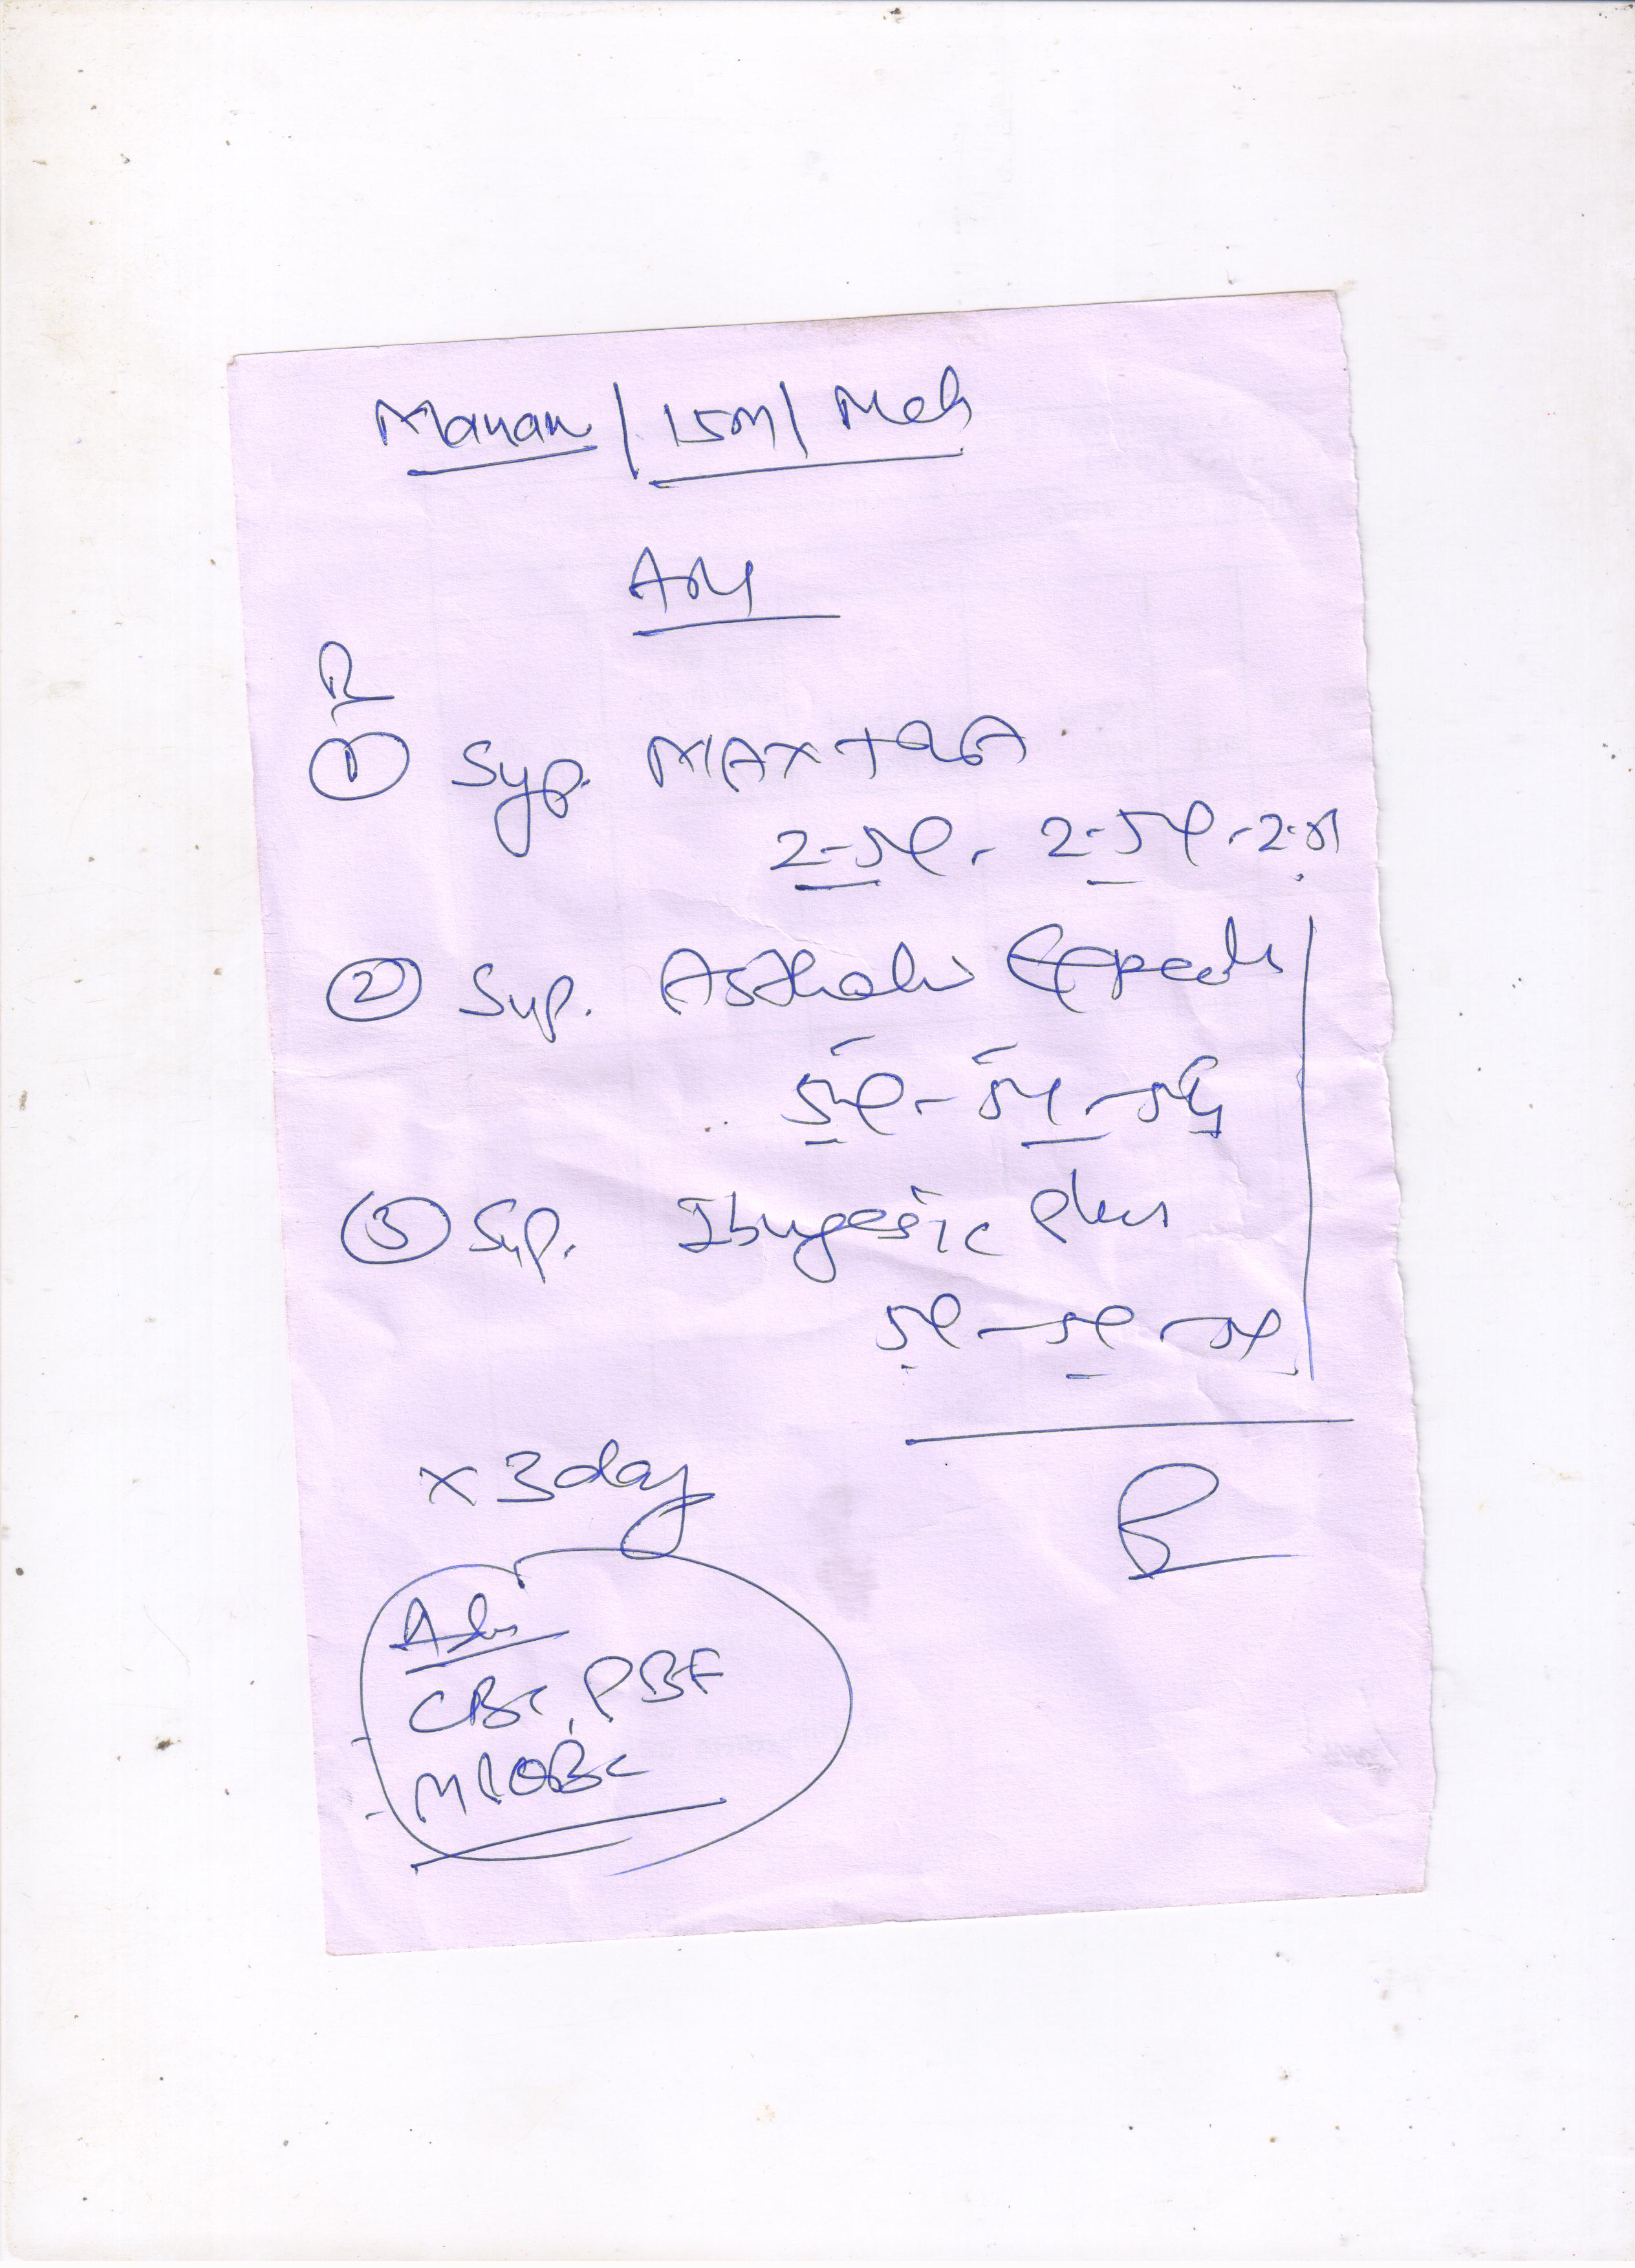 Manan / 15M /
R
① Syp. MAXTRA
2.5ml - 2.5ml - 2.5ml
② Syp. Asthalin Expect
5ml - 5ml - 5ml
③ Syp. Ibugesic Plus
5ml - 5ml - 5ml
x 3 day
Adv
CBC, PBF